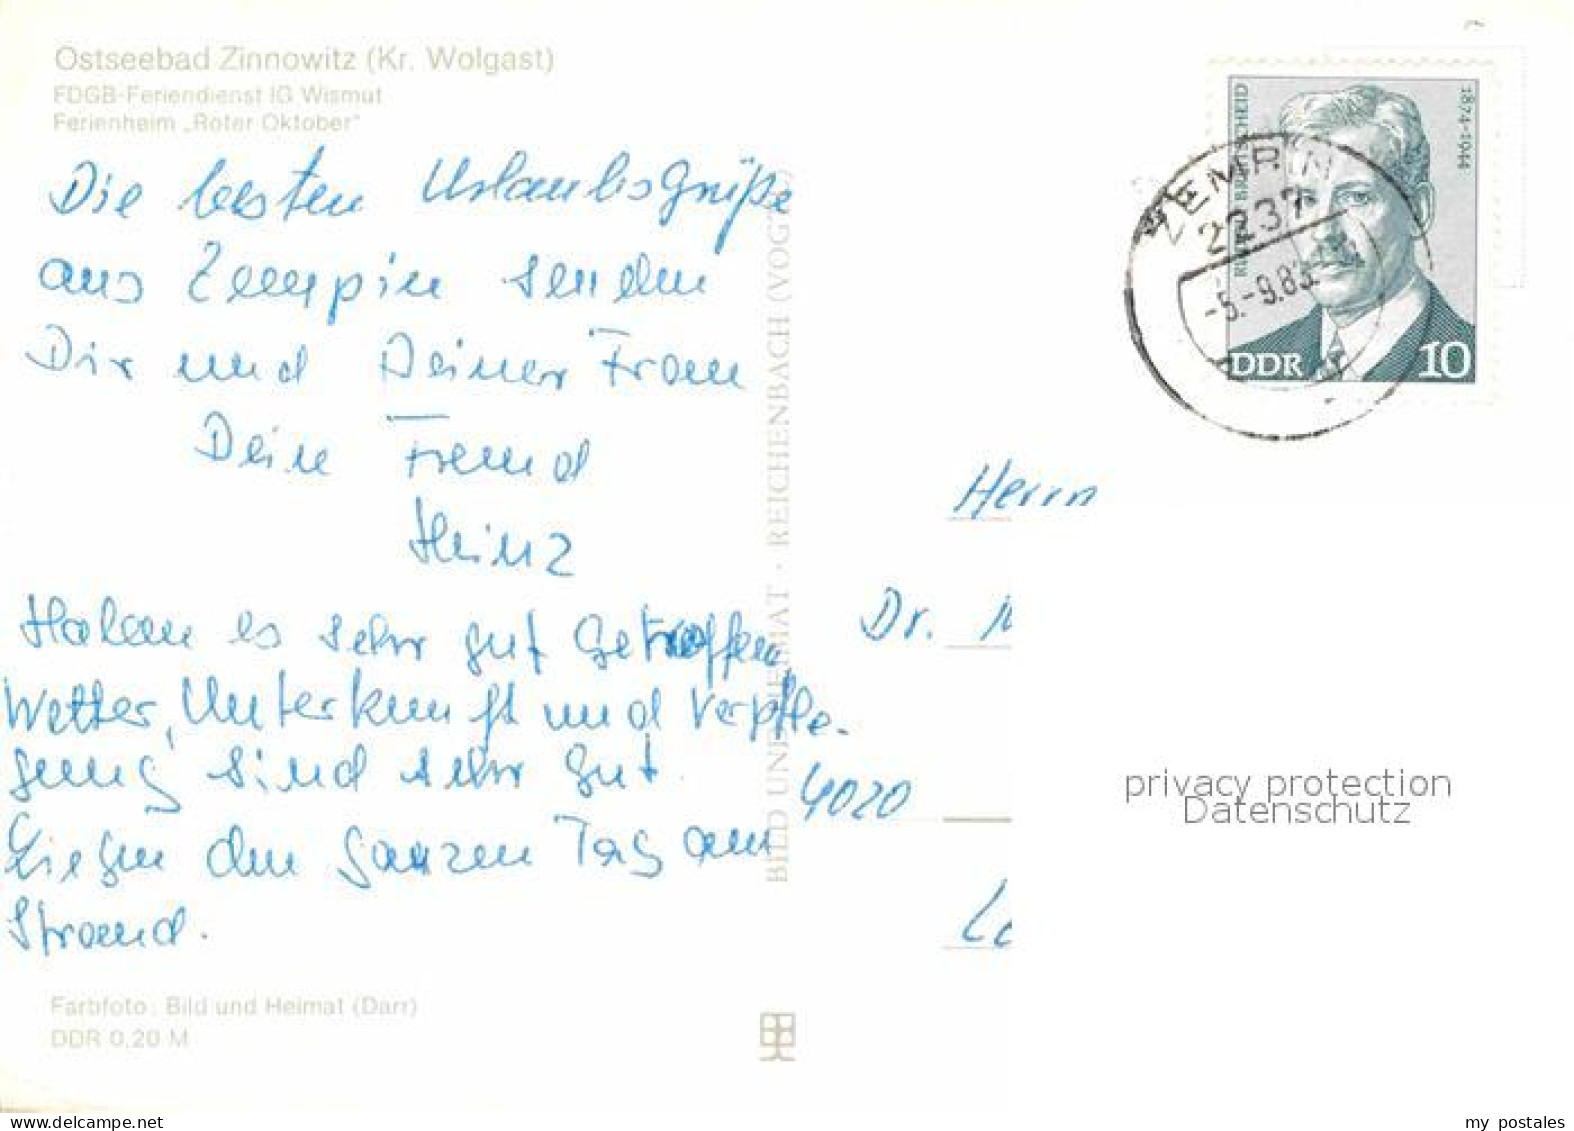 Ostseebad Zinnowitz (Kr. Wolgast)
FDGB-Feriendienst IG Wismut
Ferienheim „Roter Oktober"
Die besten Urlaubsgrüße
aus Zempin senden
Dir und Deiner Frau
Dein Freund
Heinz
Haben es sehr gut getroffen
Wetter, Unterkunft und Verpfle-
gung sind sehr gut.
Liegen den ganzen Tag am
Strand.
Farbfoto: Bild und Heimat (Darr)
DDR 0,20 M
BILD UND HEIMAT · REICHENBACH (VOGTL)
BREITSCHEID
1874-1944
DDR 10
ZEMPIN
2237
-5.-9.83
Herrn
Dr.
4020
privacy protection
Datenschutz
www.delcampe.net
my_postales